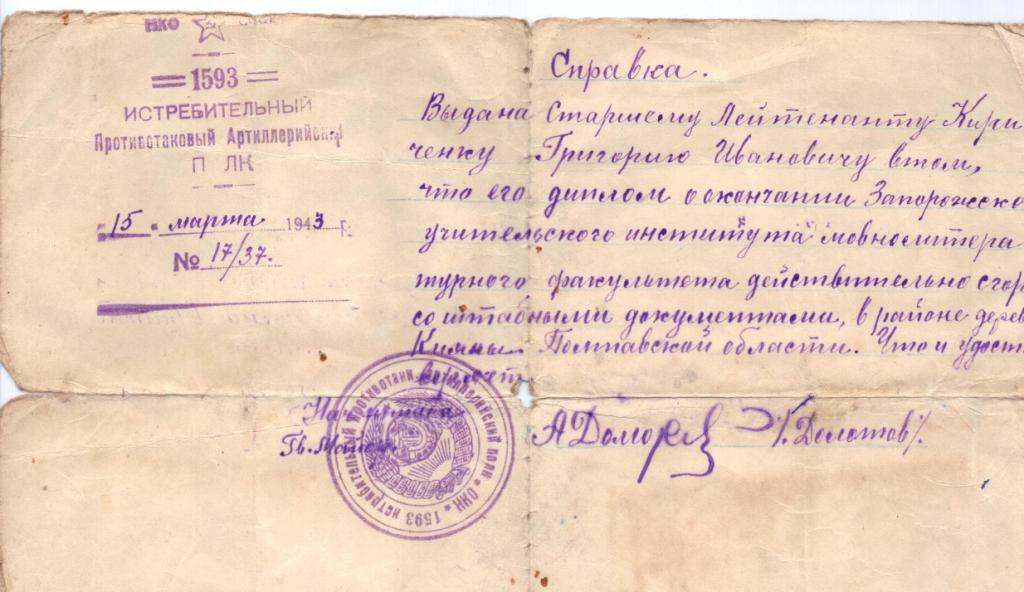 НКО
1593
ИСТРЕБИТЕЛЬНЫЙ
Противотаковый Артиллерийский
П ЛК
"15" марта 1943 г.
№ 17/37.
Справка.
Выдана Старшему Лейтенанту Кири
ченку Григорию Ивановичу в том,
что его диплом о окончании Запорожско
учительского института мовнолитера
турного факультета действительно сгор
со штабными документами, в районе дерев
Полтавской области. Что и удост
Нач. штаба
Гв. Майор
1593 истребительный противотанк. артиллерийский полк * ОНН *